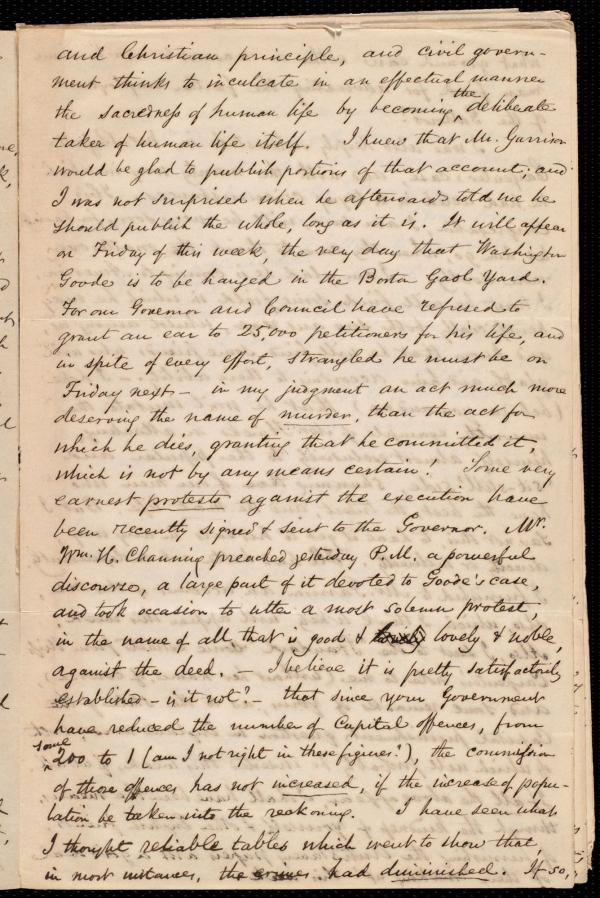 and Christian principle, and civil govern-
ment thinks to inculcate in an effectual manner
the sacredness of human life by becoming the deliberate
taker of human life itself. I knew that Mr. Garrison
would be glad to publish portions of that account; and
I was not surprised when he afterwards told me he
should publish the whole, long as it is. It will appear
on Friday of this week, the very day that Washington
Goode is to be hanged in the Boston Gaol Yard.
For our Governor and Council have refused to
grant an ear to 25,000 petitioners for his life, and
in spite of every effort, strangled he must be on
Friday next - in my judgment an act much more
deserving the name of murder, than the act for
which he dies, granting that he committed it,
which is not by any means certain! Some very
earnest protests against the execution have
been recently signed & sent to the Governor. Mr.
Wm. H. Channing preached yesterday P.M. a powerful
discourse, a large part of it devoted to Goode's case,
and took occasion to utter a most solemn protest,
in the name of all that is good & lovely & noble,
against the deed. - I believe it is pretty satisfactorily
established - is it not? - that since your Government
have reduced the number of Capital offences, from
some 200 to 1 (am I not right in these figures?), the commission
of those offences has not increased, if the increase of popu-
lation be taken into the reckoning. I have seen what
I thought reliable tables which went to show that,
in most instances, the crimes had diminished. If so,